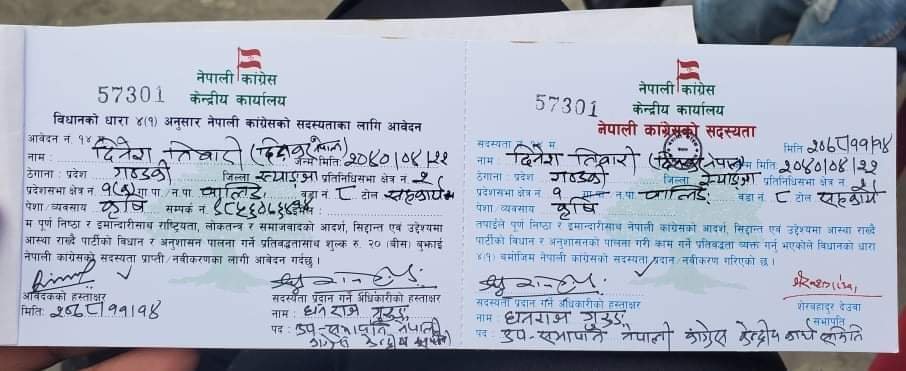 नेपाली कांग्रेस
57301
केन्द्रीय कार्यालय
विधानको धारा ४(१) अनुसार नेपाली कांग्रेसको सदस्यताका लागि आवेदन
आवेदन नं. १४
नाम : दिनेश तिवारी जन्म मिति: २०४०।०४।२२
ठेगाना : प्रदेश गण्डकी जिल्ला स्याङ्जा प्रतिनिधिसभा क्षेत्र नं २
प्रदेशसभा क्षेत्र नं. गा.पा./न.पा. वालिङ वडा नं ८ टोल
पेशा/व्यवसाय कृषि सम्पर्क नं.
म पूर्ण निष्ठा र इमान्दारीसाथ राष्ट्रियता, लोकतन्त्र र समाजवादको आदर्श, सिद्दान्त एवं उद्देश्यमा
आस्था राख्दै पार्टीको विधान र अनुशासन पालना गर्ने प्रतिबद्धतासाथ शुल्क रु. २० (बीस) बुझाई
नेपाली कांग्रेसको सदस्यता प्राप्ती/नवीकरणका लागी आवेदन गर्दछु ।
आवेदकको हस्ताक्षर
मिति: २०७८/११/१४
सदस्यता प्रदान गर्ने अधिकारीको हस्ताक्षर
नाम : धनराज गुरुङ
पद : उप-सभापति नेपाली
कांग्रेस केन्द्रीय
नेपाली कांग्रेस
57301
केन्द्रीय कार्यालय
नेपाली कांग्रेसको सदस्यता
सदस्यता मिति २०७८/११/१४
नाम : दिनेश तिवारी जन्म मिति: २०४०।०४।२२
ठेगाना : प्रदेश गण्डकी जिल्ला स्याङ्जा प्रतिनिधिसभा क्षेत्र नं २
प्रदेशसभा क्षेत्र नं. १ गा.पा./न.पा. वालिङ वडा नं ८ टोल
पेशा/व्यवसाय कृषि
तपाईंले पूर्ण निष्ठा र इमान्दारीसाथ नेपाली कांग्रेसको आदर्श, सिद्दान्त एवं उद्देश्यमा आस्था राख्दै
पार्टीको विधान र अनुशासनको पालना गरी काम गर्ने प्रतिबद्धता व्यक्त गर्नु भएकोले विधानको धारा
४(१) बमोजिम नेपाली कांग्रेसको सदस्यता प्रदान/नवीकरण गरिएको छ ।
सदस्यता प्रदान गर्ने अधिकारीको हस्ताक्षर
नाम : धनराज गुरुङ
पद : उप-सभापति नेपाली कांग्रेस केन्द्रीय कार्य समिति
शेरबहादुर देउवा
सभापति